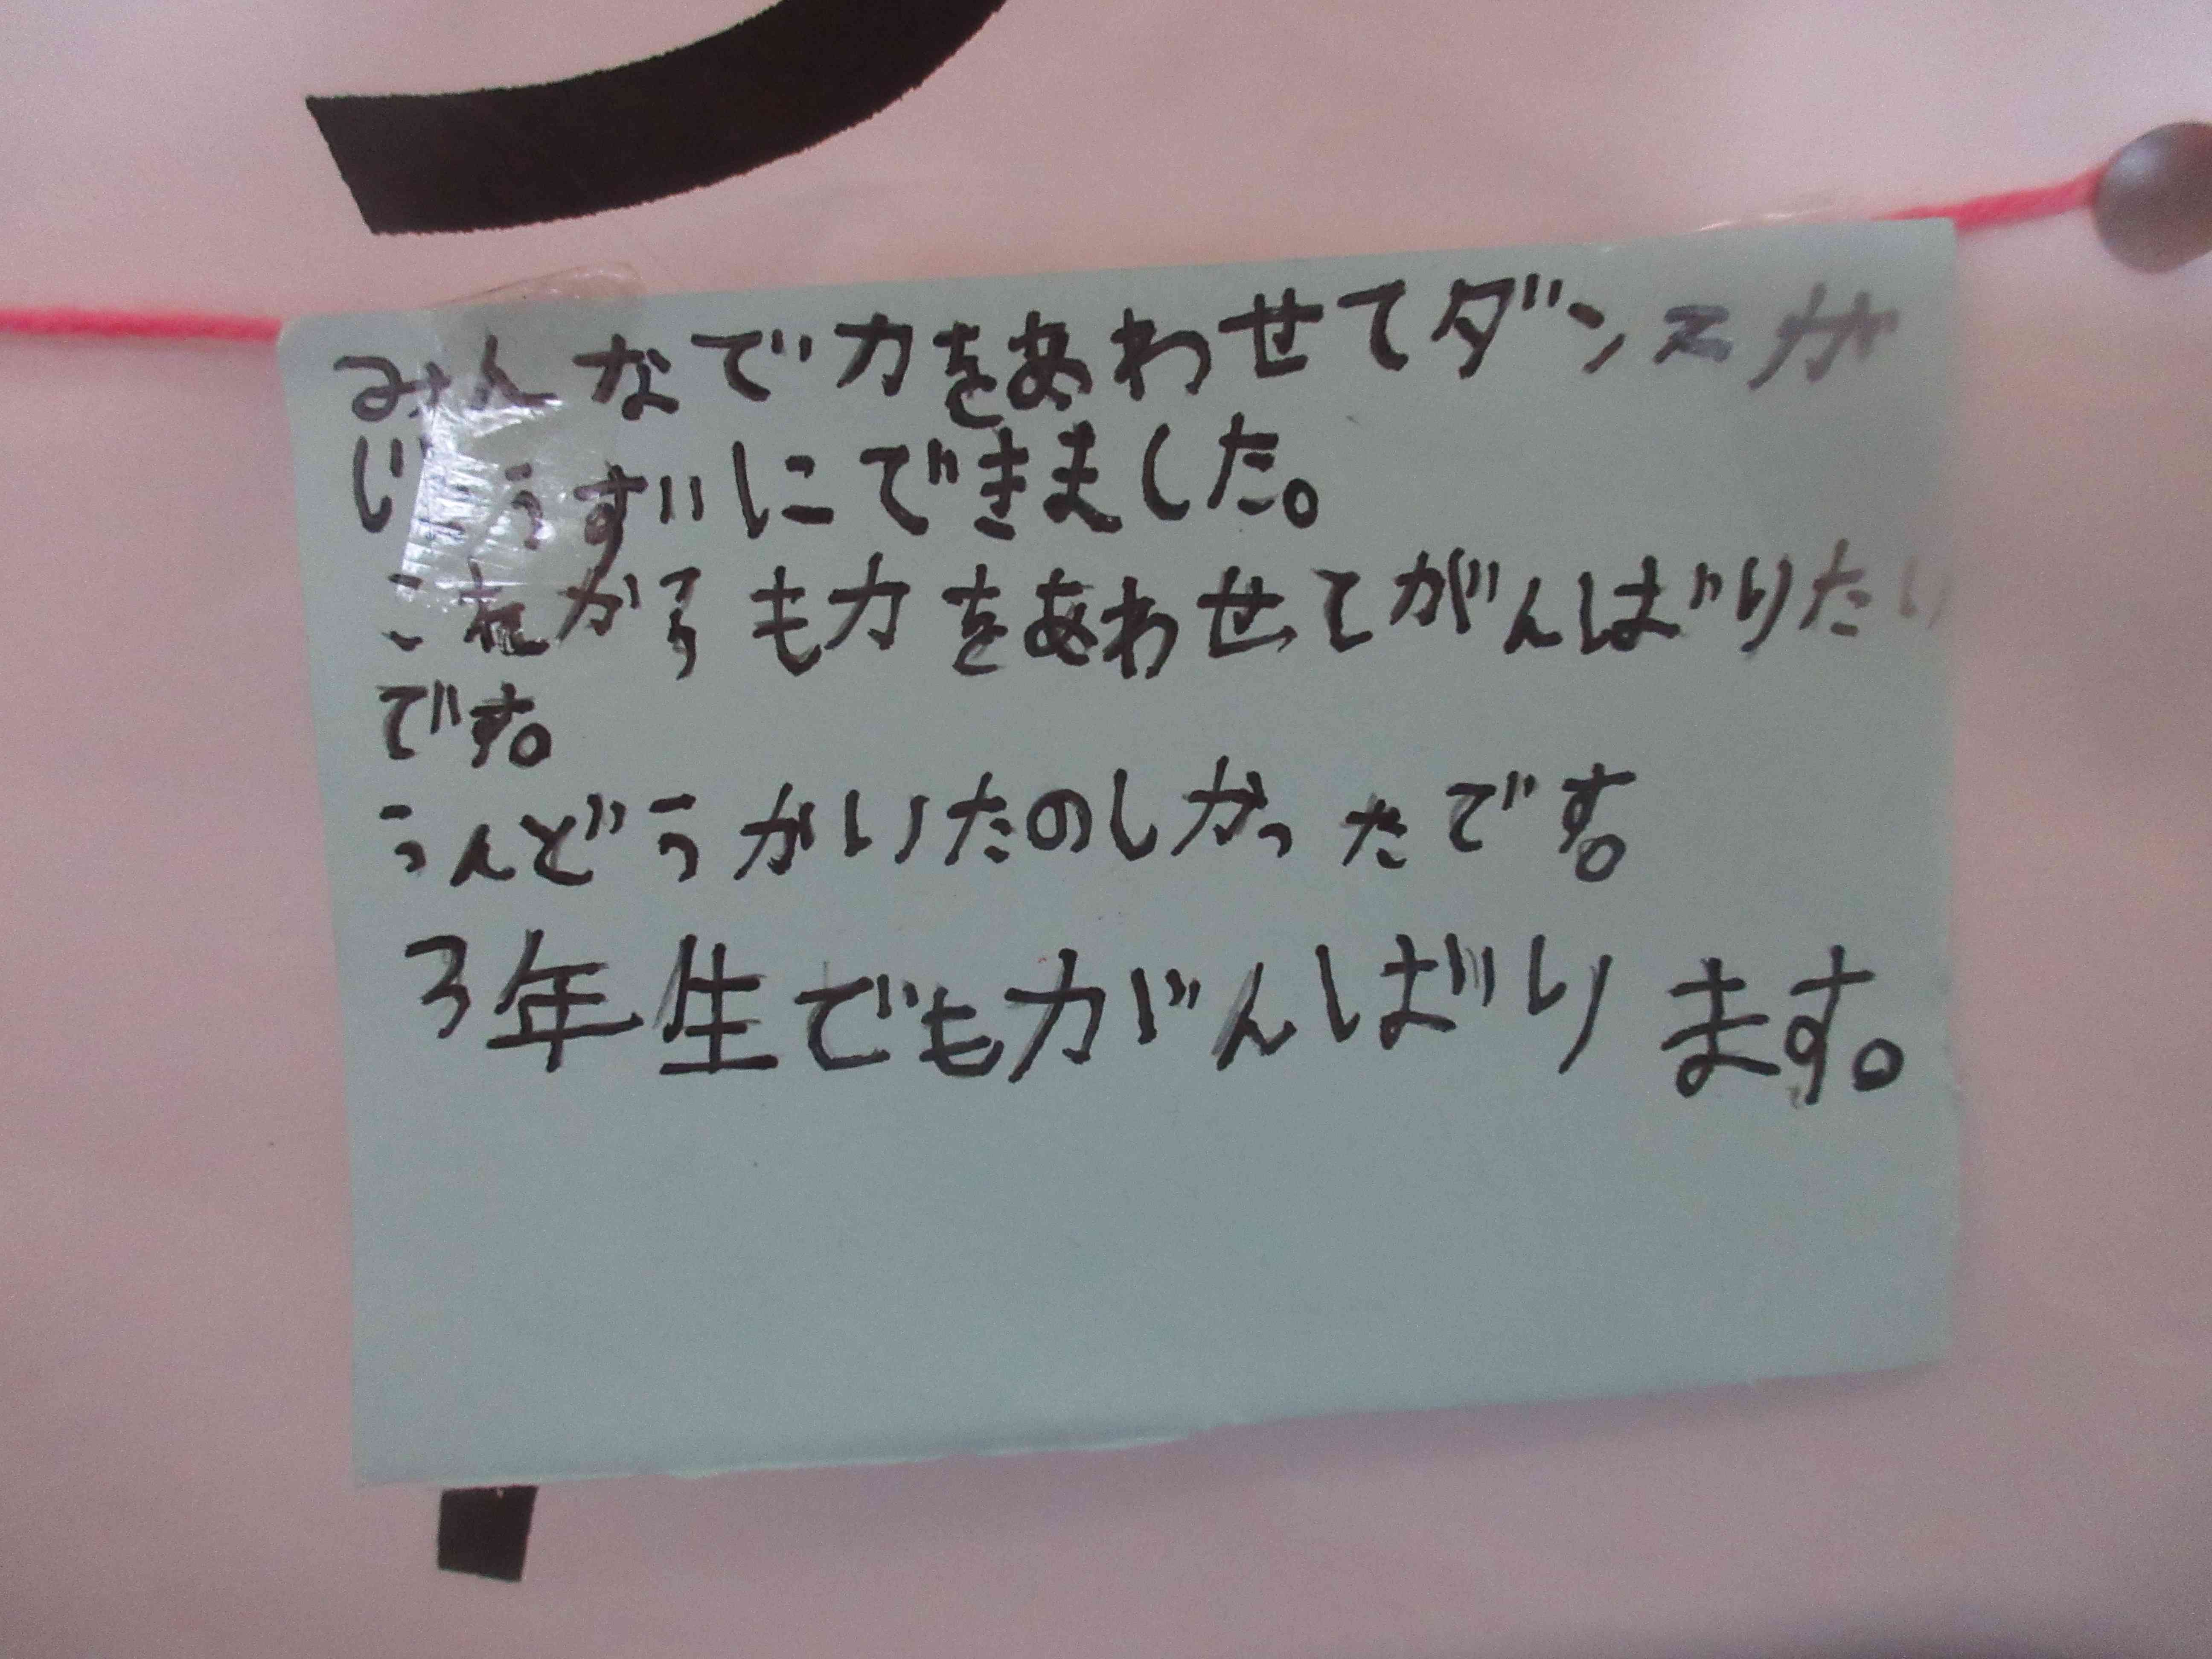 みんなで力をあわせてダンスが
じょうずにできました。
これからも力をあわせてがんばりたい
です。
うんどうかいたのしかったです。
3年生でもがんばります。